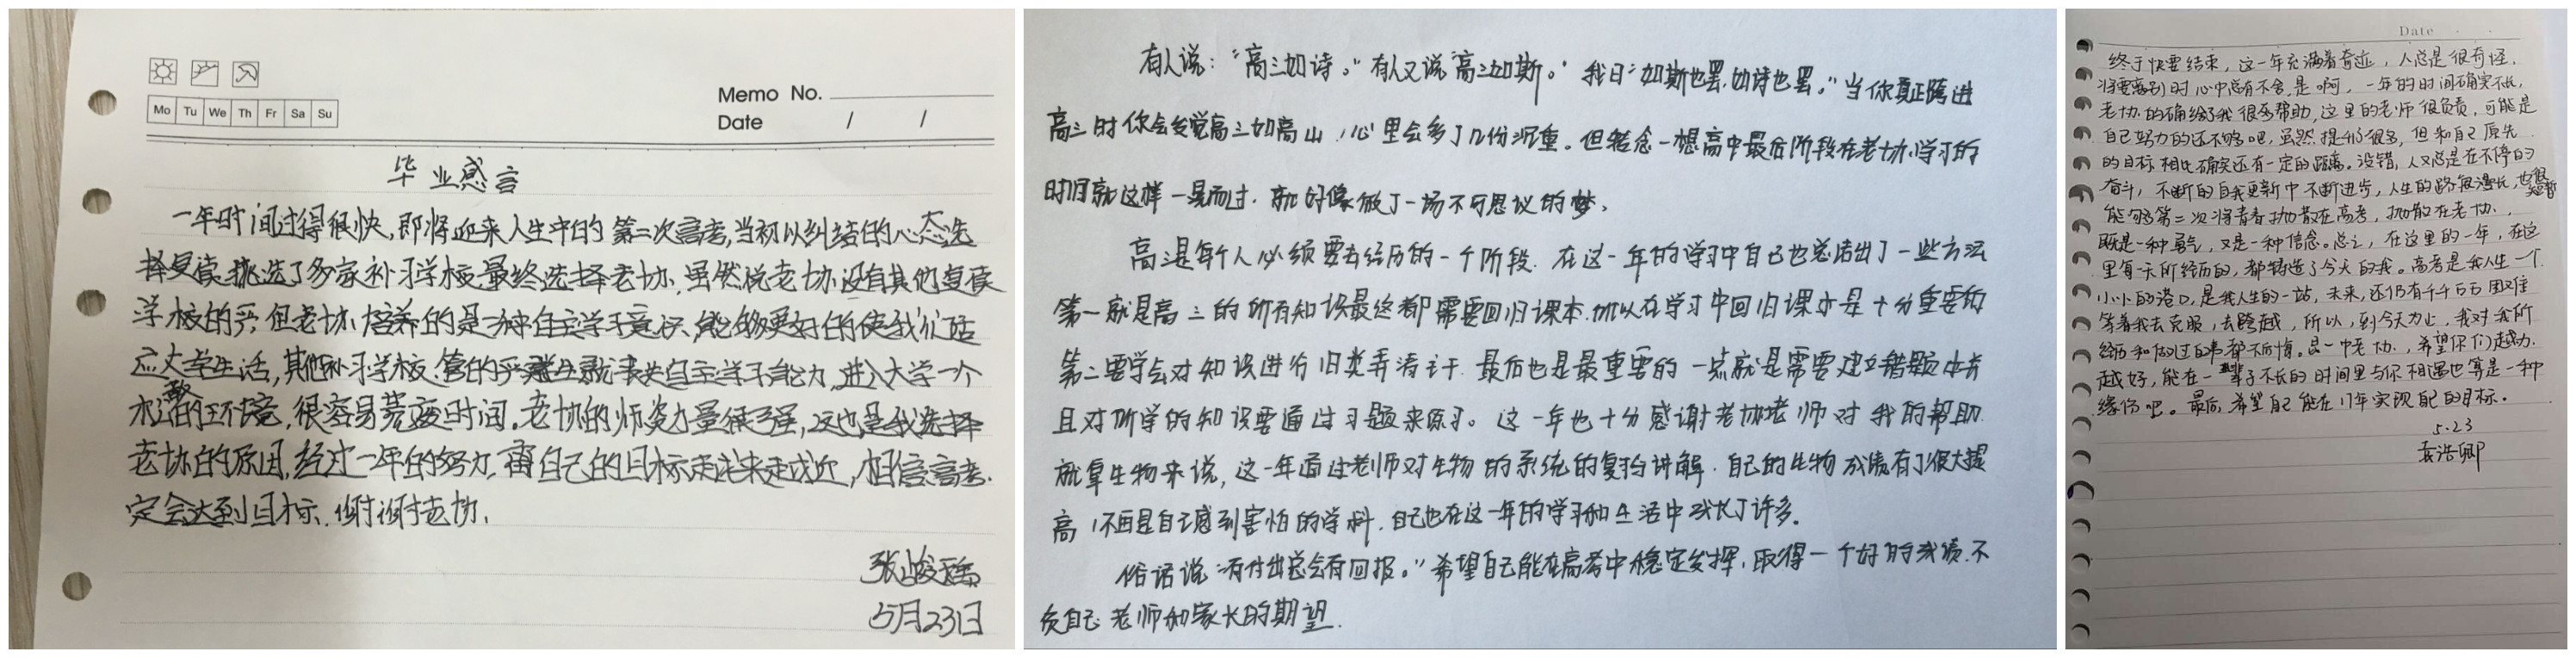 Memo No.
Mo Tu We Th Fr Sa Su
Date / /
毕业感言
一年时间过得很快,即将迎来人生中的第二次高考,当初以纠结的心态选
择复读,挑选了多家补习学校,最终选择老协,虽然说老协没有其他复读
学校的严,但老协培养的是一种自主学习意识,能够更好的使我们适
应大学生活,其他补习学校管的严,就丧失自主学习能力,进入大学一个
松散的环境,很容易荒废时间。老协的师资力量很强,这也是我选择
老协的原因,经过一年的努力,离自己的目标走越来走越近,相信高考
定会达到目标,谢谢老协。
5月23日
有人说:“高三如诗。”有人又说“高三如斯。”我曰“如斯也罢,如诗也罢。”当你真正跨进
高三时你会发觉高三如高山,心里会多了几份沉重。但转念一想高中最后阶段在老协学习的
时间就这样一晃而过,就好像做了一场不可思议的梦。
高三是每个人必须要去经历的一个阶段,在这一年的学习中自己也总结出了一些方法
第一就是高三的所有知识最终都需要回归课本,所以在学习中回归课本是十分重要的
第二要学会对知识进行归类弄清主干,最后也是最重要的一点就是需要建立错题本并
且对所学的知识要通过习题来练习。这一年也十分感谢老协老师对我的帮助
就拿生物来说,这一年通过老师对生物的系统的复习讲解,自己的生物成绩有了很大提
高,不再是自己感到害怕的学科,自己也在这一年的学习和生活中成长了许多。
俗话说“有付出总会有回报。”希望自己能在高考中稳定发挥,取得一个好的成绩,不
负自己老师和家长的期望.
Date
终于快要结束,这一年充满着奇迹,人总是很奇怪,
将要离别时心中总有不舍,是啊,一年的时间确实不长,
老协的确给了我很多帮助,这里的老师很负责,可能是
自己努力的还不够吧,虽然提升了很多,但和自己原先
的目标相比确实还有一定的距离。没错,人又总是在不停的
奋斗,不断的自我更新中不断进步,人生的路很漫长,也很短暂
能够第二次将青春抛散在高考,抛散在老协,
既是一种勇气,又是一种信念。总之,在这里的一年,在这
里每一天所经历的,都铸造了今天的我。高考是我人生一个
小小的港口,是我人生的一站,未来,还仍有千千万万困难
等着我去克服,去跨越,所以,到今天为止,我对我所
经历和做过的事都不后悔。品一中老协,希望你们越办
越好,能在一辈子不长的时间里与你相遇也算是一种
缘份吧。最后,希望自己能在17年实现自己的目标。
5.23
袁浩卿